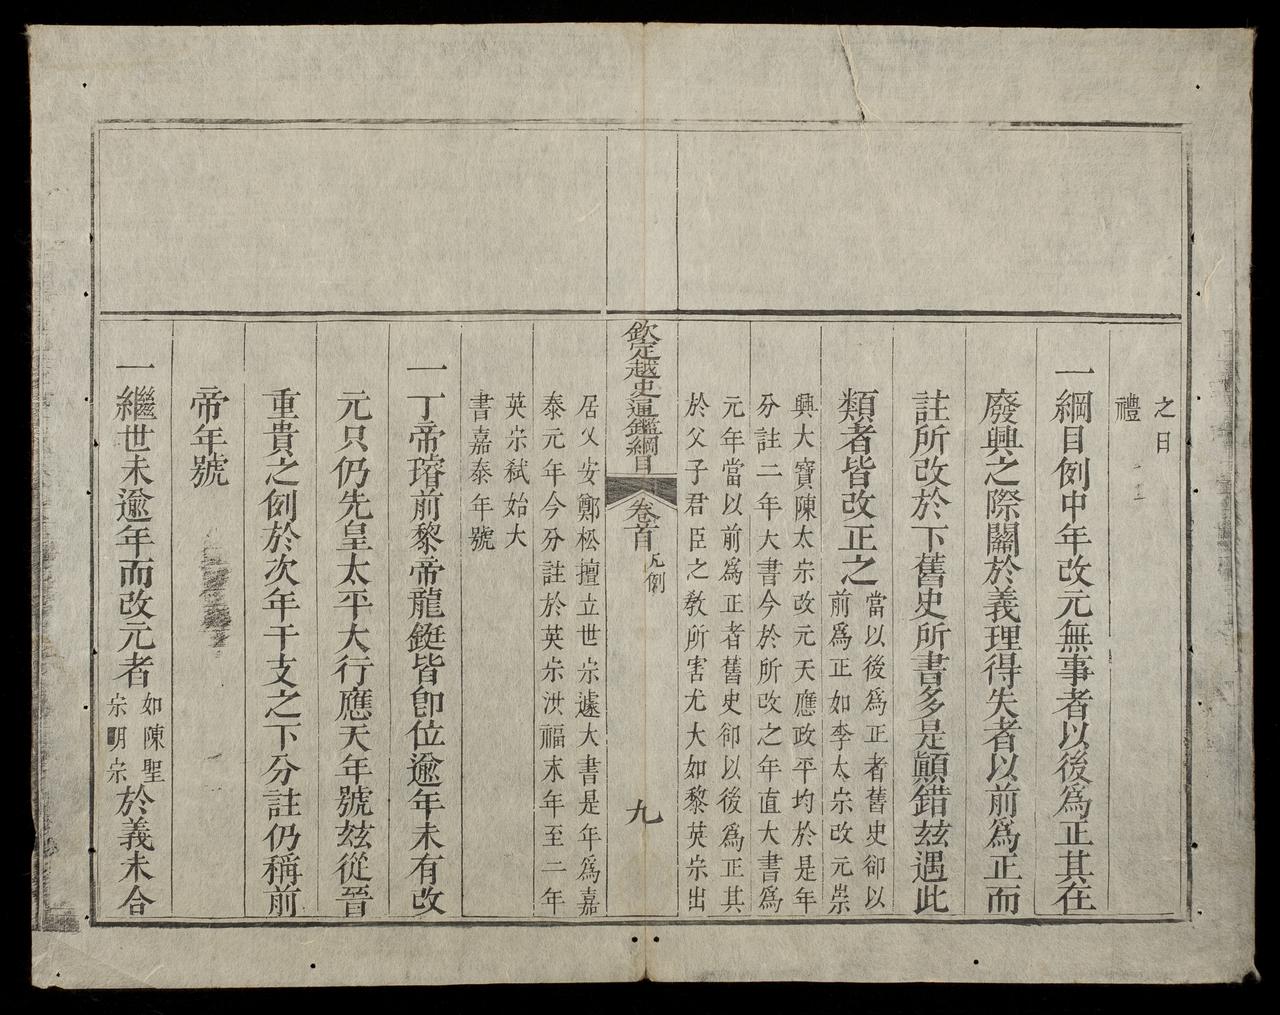 之曰
禮
一綱目例中年改元無事者以後爲正其在
廢興之際關於義理得失者以前爲正而
註所改於下舊史所書多是顚錯玆遇此
類者皆改正之
當以後爲正者舊史卻以
前爲正如李太宗改元崇
興大寶陳太宗改元天應政平均於是年
分註二年大書今於所改之年直大書爲
元年當以前爲正者舊史卻以後爲正其
於父子君臣之敎所害尤大如黎英宗出
欽定越史通鑑綱目
卷首
凡例
九
居乂安鄭松擅立世宗遽大書是年爲嘉
泰元年今分註於英宗洪福末年至二年
英宗弒始大
書嘉泰年號
一丁帝璿前黎帝龍鋌皆卽位逾年未有改
元只仍先皇太平大行應天年號玆從晉
重貴之例於次年干支之下分註仍稱前
帝年號
一繼世未逾年而改元者
如陳聖
宗明宗
於義未合